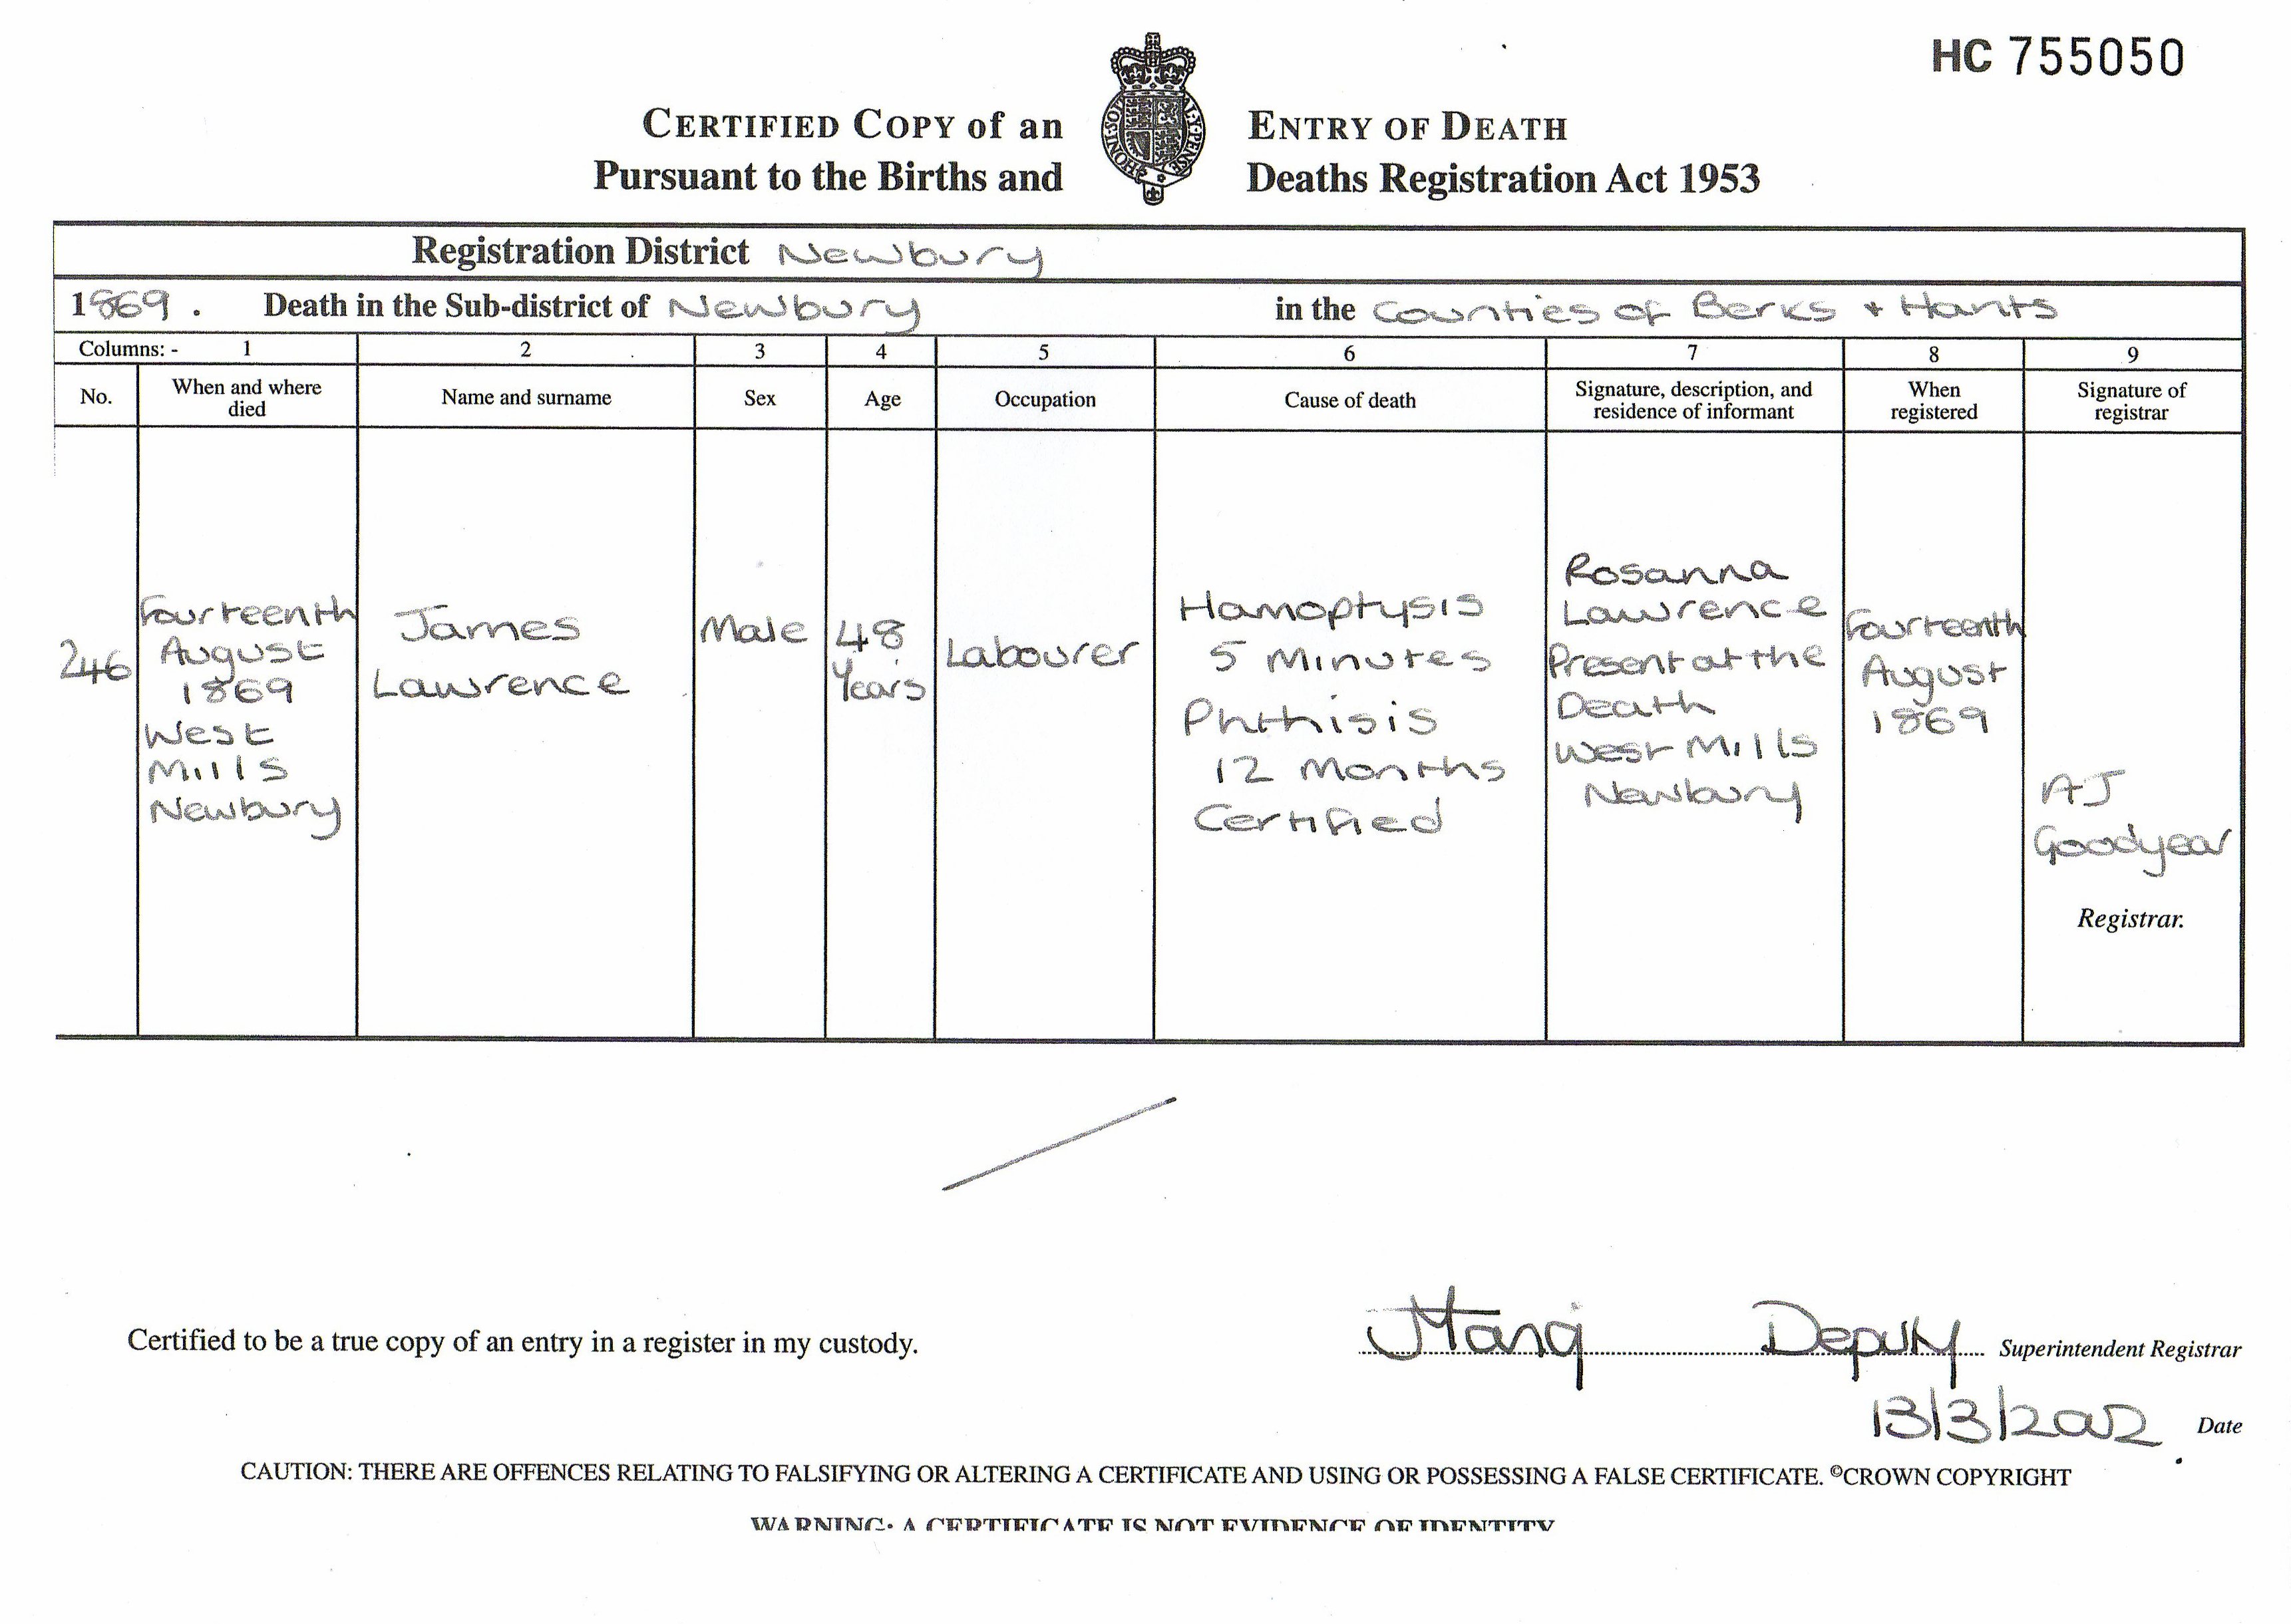 HC 755050
CERTIFIED COPY of an ENTRY OF DEATH
Pursuant to the Births and Deaths Registration Act 1953
Registration District Newbury
1869. Death in the Sub-district of Newbury in the Counties of Berks + Hants
Columns: - 1 2 3 4 5 6 7 8 9
No.
When and where
died
Name and surname
Sex
Age
Occupation
Cause of death
Signature, description, and
residence of informant
When
registered
Signature of
registrar
246
Fourteenth
August
1869
West
Mills
Newbury
James
Lawrence
Male
48
Years
Labourer
Hamoptysis
5 Minutes
Phthisis
12 Months
Certified
Rosanna
Lawrence
Present at the
Death
West Mills
Newbury
Fourteenth
August
1869
AJ
Goodyear
Registrar.
Certified to be a true copy of an entry in a register in my custody.
Deputy Superintendent Registrar
13/3/2002 Date
CAUTION: THERE ARE OFFENCES RELATING TO FALSIFYING OR ALTERING A CERTIFICATE AND USING OR POSSESSING A FALSE CERTIFICATE. ©CROWN COPYRIGHT
WARNING: A CERTIFICATE IS NOT EVIDENCE OF IDENTITY